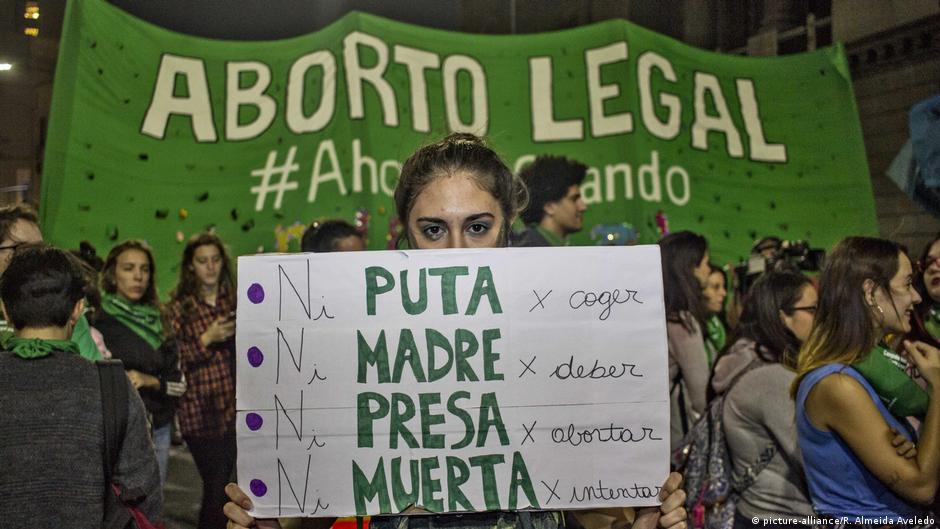 ABORTO LEGAL
#Aho ando
Ni PUTA x coger
Ni MADRE x deber
Ni PRESA x abortar
Ni MUERTA x intentar
picture-alliance/R. Almeida Aveledo